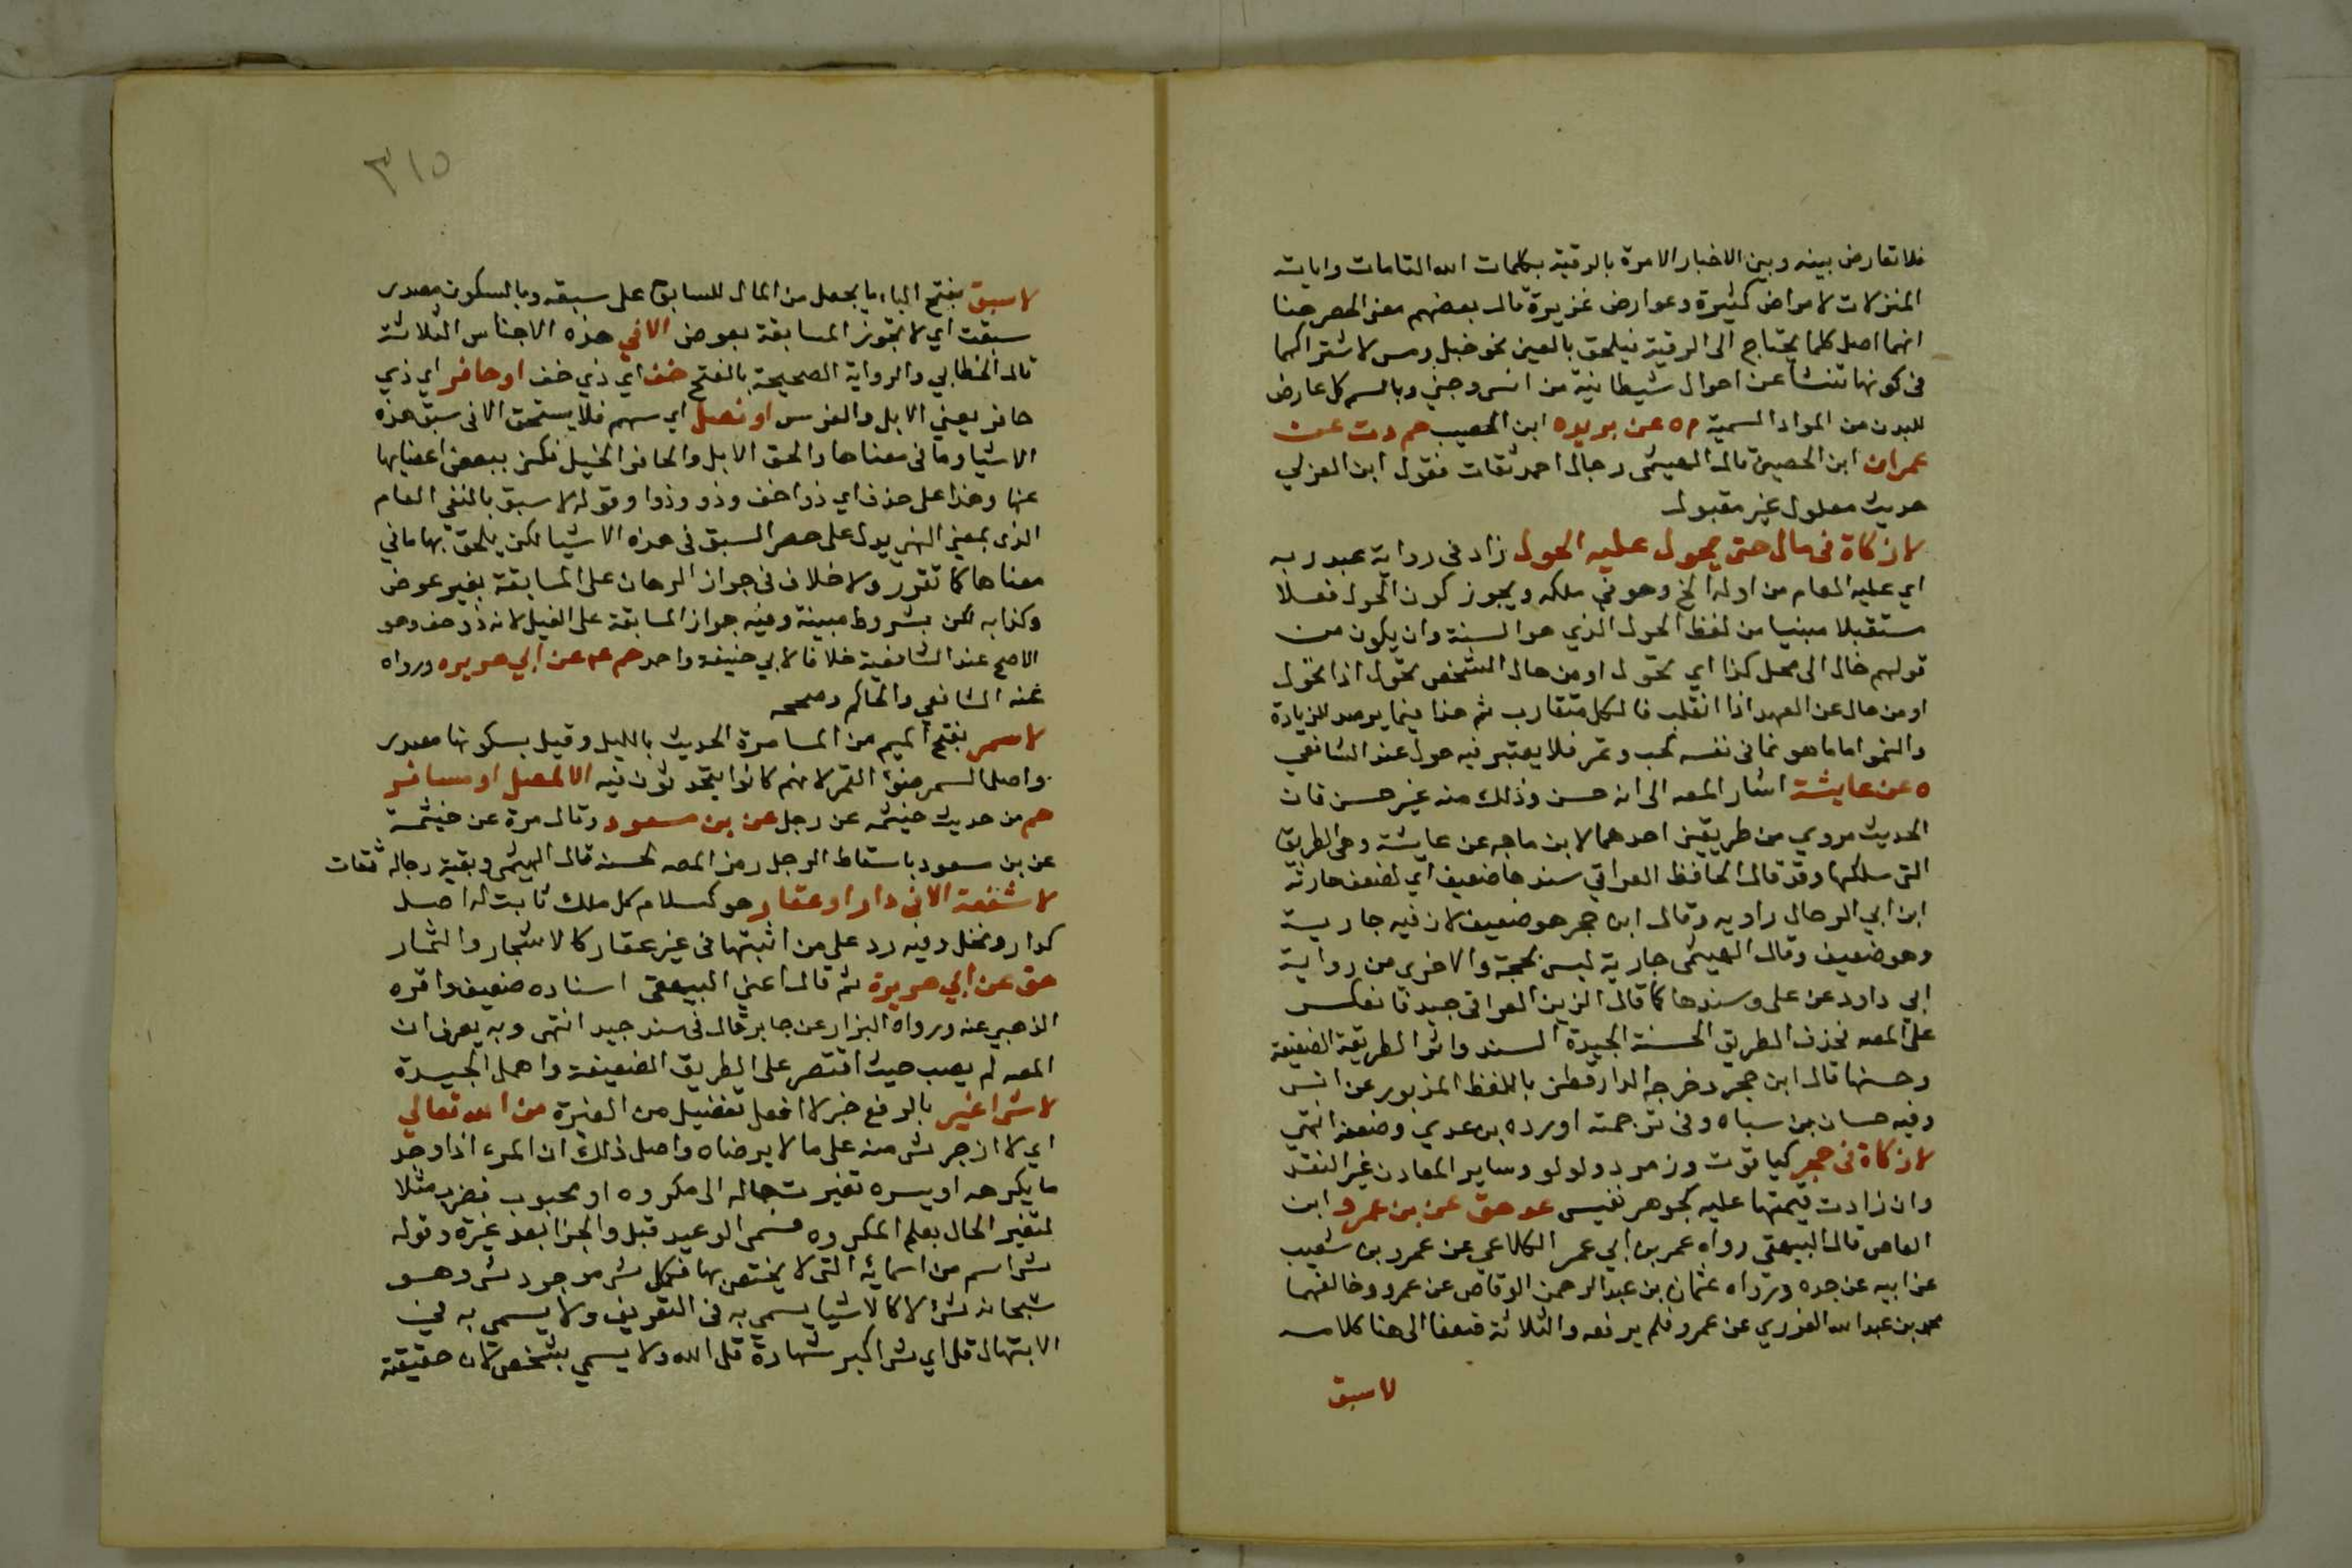 فلا تعارض بينه وبين الاخبار الامرة بالرقية بكلمات الله التامات واياته
المنزلات لامراض كثيرة وعوارض غزيرة قال بعضهم معنى الحصر هنا
انهما اصل كلما يحتاج الى الرقية فيلحق بالعين نحو خبل ومس لاشتراكهما
فى كونها تنشأ عن احوال شيطانية من انس وجني وبالسم كل عارض
للبدن من المواد السمية م ه عن بريده ابن الحصيب حم د ت عن
عمران ابن الحصين قال الهيثمى رجال احمد ثقات فقول ابن العربي
حديث معلول غير مقبول
لا زكاة فى مال حتى يحول عليه الحول زاد في رواية عبد ربه
اي عليه العام من اوله الخ وهو في ملكه ويجوز كون الحول فعلا
مستقبلا مبنيا من لفظ الحول الذي هو السنة وان يكون من
قولهم حال الى محل كذا اي تحول او من حال الشخص تحول اذا تحول
او من حال عن العهد اذا انقلب فالكل متقارب ثم هذا فيما يرصد للزيادة
والنمو اما ما هو نما فى نفسه كحب وتمر فلا يعتبر فيه حول عند الشافعي
ه عن عايشة اشار المصه الى انه حسن وذلك منه غير حسن فان
الحديث مروي من طريقين احدهما لابن ماجه عن عايشة وهى الطريق
التى سلكها وقد قال الحافظ العراقي سندها ضعيف اي لضعف حارثه
ابن ابي الرحال راويه وقال ابن حجر هو ضعيف لان فيه جارية
وهو ضعيف وقال الهيثمى جارية ليس بحجة والاخرى من رواية
ابي داود عن على وسندها كما قال الزين العراقى جيد فانعكس
على المصه فحذف الطريق الحسنة الجيدة السند واثر الطريقة الضعيفة
وحسنها قال ابن حجر وخرجه الدارقطنى باللفظ المزبور عن انس
وفيه حسان بن سياه وفى ترجمته اورده بن عدي وضعفه انتهي
لا زكاة فى حجر كياقوت وزمرد ولولو وساير المعادن غير النقد
وان زادت قيمتها عليه كجوهر نفيس عد هق عن بن عمرو ابن
العاص قال البيهقي رواه عمر بن ابي عمر الكلاعي عن عمرو بن شعيب
عن ابيه عن جده ورواه عثمان بن عبد الرحمن الوقاص عن عمرو وخالفهما
محمد بن عبد الله الفزري عن عمرو فلم يرفعه والثلاثة ضعفا الى هنا كلامه
لا سبق
٣١٥
لا سبق بفتح الباء ما يجعل من المال للسابق على سبقه وبالسكون مصدر
سبقت اي لا تجوز المسابقة بعوض الا في هذه الاجناس الثلاثة
قال الخطابي والرواية الصحيحة بالفتح خف اي ذي خف او حافر اي ذي
حافر يعني الابل والفرس او نصل اي سهم فلا يستحق الا فى سبق هذه
الاشيا وما فى معناها والحق الابل والحافر الخيل فكنى ببعض اعضايها
عنها وهذا على حذف اي ذوا خف وذو وذوا وقوله لا سبق بالنفي العام
الذى بمعنى النهى يدل على حصر السبق فى هذه الاشيا لكن يلحق بها ما في
معناها كما تقرر ولا خلاف فى جواز الرهان على المسابقة بغير عوض
وكذا به لكن بشروط مبينة وفيه جواز المسابقة على الفيل لانه ذو خف وهو
الاصح عند الشافعية خلافا لابي حنيفة واحمد حم عه عن ابي هريره ورواه
عنه الشافعي والحاكم وصححه
لا سمر بفتح الميم من المسامرة الحديث بالليل وقيل بسكونها مصدر
واصل السمر ضوء القمر لانهم كانوا يتحدثون فيه الا لمصل او مسافر
حم من حديث خيثمه عن رجل عن بن مسعود وقال مرة عن خيثمة
عن بن مسعود باسقاط الرجل رمز المصه لحسنه قال الهيثمى وبقية رجاله ثقات
لا شفعة الا فى دار او عقار هو كسلام كل ملك ثابت له اصل
كدار ونخل وفيه رد على من اثبتها فى غير عقار كالاشجار والثمار
هق عن ابي هريرة ثم قال اعني البيهقى اسناده ضعيف واقره
الذهبي عنه ورواه البزار عن جابر قال فى سند جيد انتهى وبه يعرف ان
المصه لم يصب حيث اقتصر على الطريق الضعيفة واهمل الجيدة
لا شئ اغير بالرفع خبر لا افعل تفضيل من الغيرة من الله تعالي
اي لا ازجر شئ منه على ما لا يرضاه واصل ذلك ان المرء اذا وجد
ما يكرهه او يسره تغيرت حاله الى مكروه او محبوب فضرب مثلا
لتغير الحال بعلم المكروه فسمى الوعيد قبل والجزا بعد غيرة وقوله
شئ اسم من اسمائه التى لا يختص بها فكل شئ موجود شئ وهو
سبحانه شئ لا كالاشيا يسمي به فى التعريف ولا يسمى به في
الابتهال قل اي شئ اكبر شهادة قل الله ولا يسمي بشخص لان حقيقة